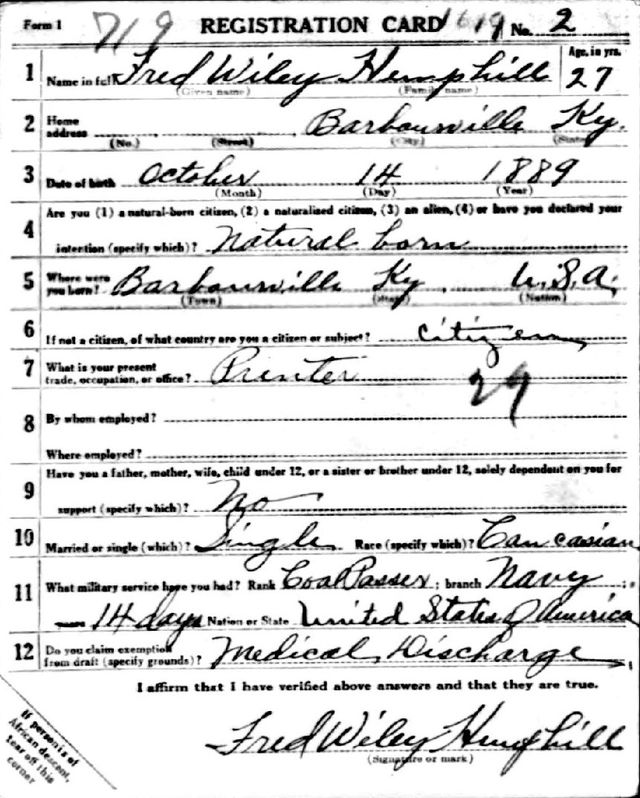 Form 1 719 REGISTRATION CARD 1619 No. 2
1 Name in full Fred Wiley Hemphill Age, in yrs. 27
(Given name) (Family name)
2 Home address Barbourville Ky.
(No.) (Street) (City) (State)
3 Date of birth October 14 1889
(Month) (Day) (Year)
4 Are you (1) a natural-born citizen, (2) a naturalized citizen, (3) an alien, (4) or have you declared your
intention (specify which)? Natural born
5 Where were you born? Barbourville Ky. U.S.A.
(Town) (State) (Nation)
6 If not a citizen, of what country are you a citizen or subject? citizen
7 What is your present
trade, occupation, or office? Printer 29
8 By whom employed?
Where employed?
9 Have you a father, mother, wife, child under 12, or a sister or brother under 12, solely dependent on you for
support (specify which)? No
10 Married or single (which)? Single Race (specify which)? Caucasian
11 What military service have you had? Rank Coal Passer ; branch Navy ;
years 14 days Nation or State United States of America
12 Do you claim exemption
from draft (specify grounds)? Medical Discharge
I affirm that I have verified above answers and that they are true.
Fred Wiley Hemphill
(Signature or mark)
If person is of
African descent,
tear off this
corner